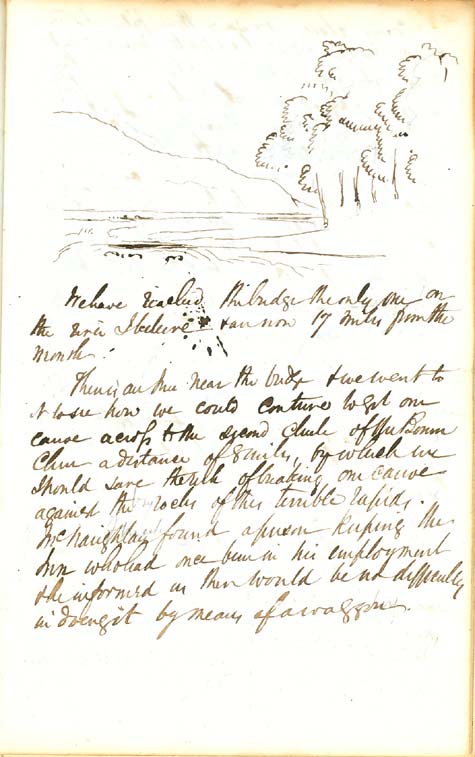 We have reached the bridge the only one on
the river I believe & are now 17 miles from the
month.
There is an Inn near the bridge & we went to
it to see how we could contrive to get our
canoe across to the second chute of the Bonne
Chere a distance of 8 miles, by which we
should save the risk of breaking our canoe
against the rocks of this terrible rapids.
McNaughtan found a person keeping the
Inn who had once been in his employment
& he informed us there would be no difficulty
in doing it by means of a waggon.